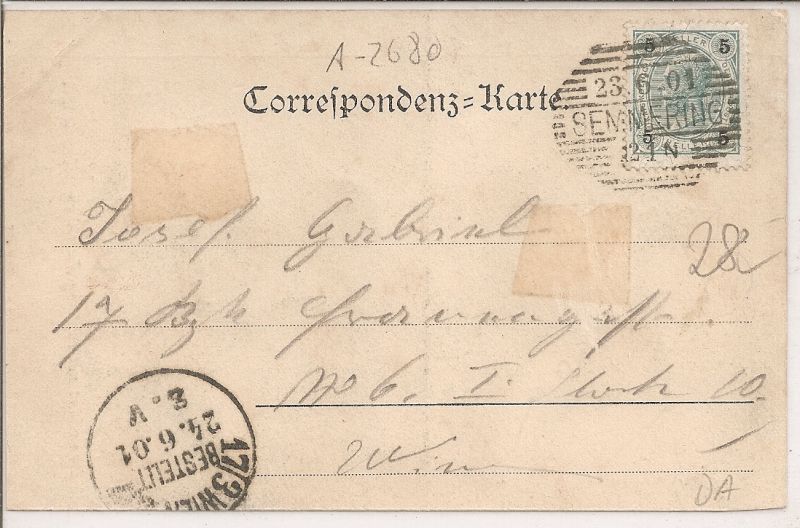 A-2680
5 5
HELLER
5 5
23.6.01
SEMMERING
Correspondenz=Karte
Josef Gabriel
28
17 Bzk
No 6. I. Stock 10.
Wien
17/3 WIEN
BESTELLT
24.6.01
DA